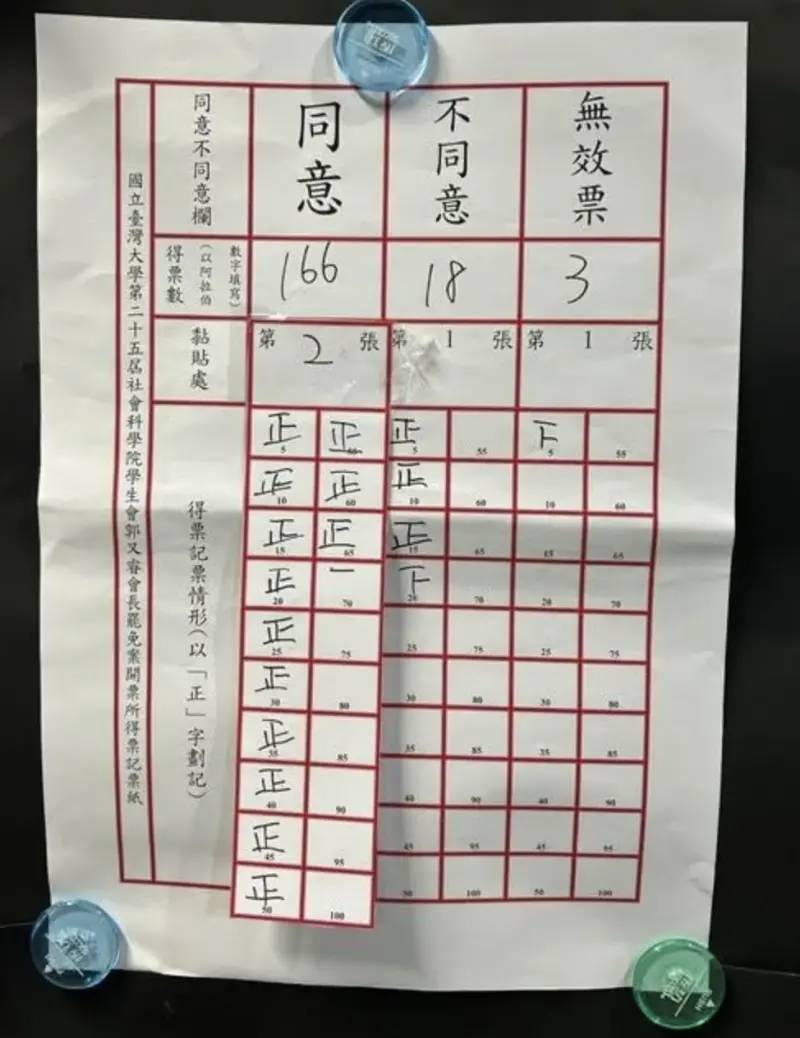 國立臺灣大學第二十五屆社會科學院學生會郭又睿會長罷免案開票所得票記票紙
同意不同意欄 同意 不同意 無效票
得票數（以阿拉伯數字填寫） 166 18 3
黏貼處 第2張 第1張 第1張
得票記票情形（以「正」字劃記）
正 5 正 正 5 55 下 5 55
正 10 正 60 正 10 60 10 60
正 15 正 65 正 15 65 15 65
正 20 一 70 下 20 70 20 70
正 25 75 25 75 25 75
正 30 80 30 80 30 80
正 35 85 35 85 35 85
正 40 90 40 90 40 90
正 45 95 45 95 45 95
正 50 100 50 100 50 100